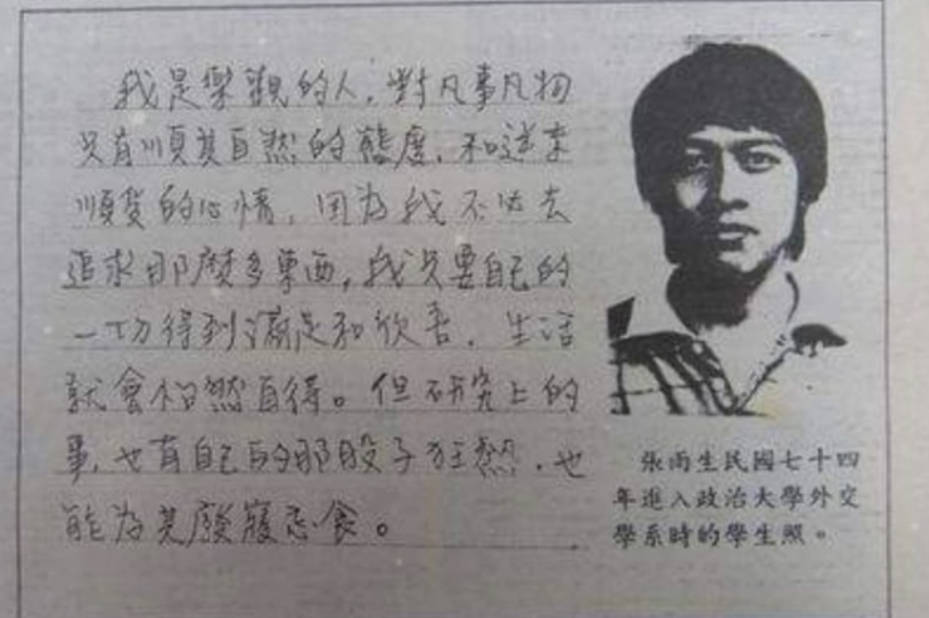 我是樂觀的人，對凡事凡物
只有順其自然的態度，和逆來
順受的心情，因為我不必去
追求那麼多東西，我只要自己的
一切得到滿足和欣喜，生活
就會怡然自得。但研究上的
事，也有自己的那股子狂熱，也
能為其廢寢忘食。
張雨生民國七十四
年進入政治大學外交
學系時的學生照。